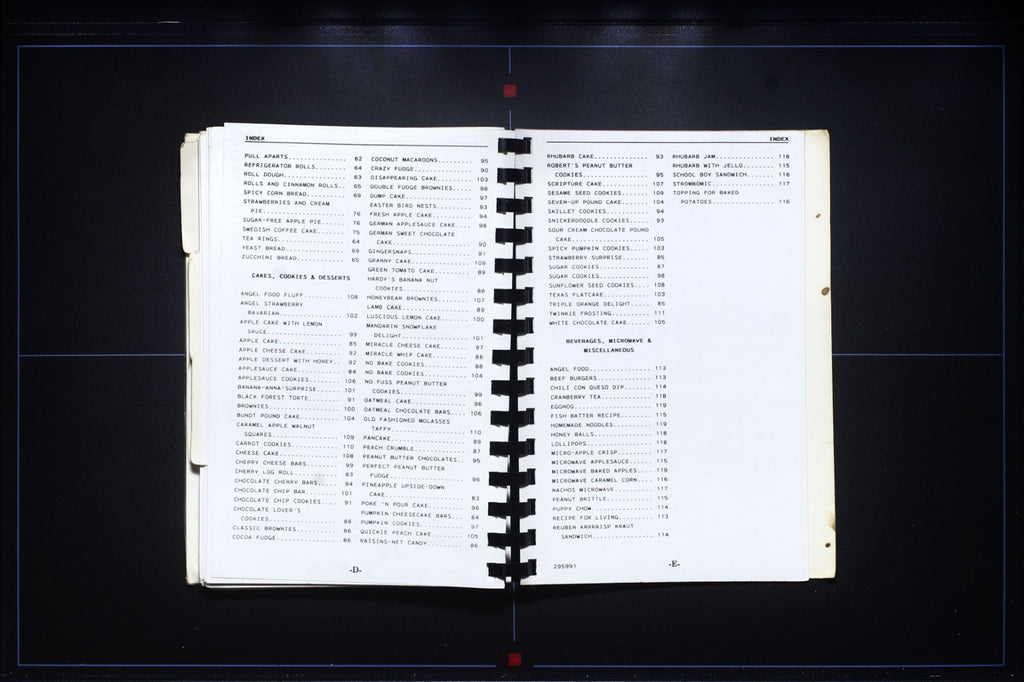 INDEX
PULL APARTS............... 62
REFRIGERATOR ROLLS........ 64
ROLL DOUGH................ 63
ROLLS AND CINNAMON ROLLS.. 65
SPICY CORN BREAD.......... 69
STRAWBERRIES AND CREAM
PIE..................... 76
SUGAR-FREE APPLE PIE...... 76
SWEDISH COFFEE CAKE....... 75
TEA RINGS................. 64
YEAST BREAD............... 69
ZUCCHINI BREAD............ 65
CAKES, COOKIES & DESSERTS
ANGEL FOOD FLUFF.......... 108
ANGEL STRAWBERRY
BAVARIAN................ 102
APPLE CAKE WITH LEMON
SAUCE................... 99
APPLE CAKE................ 85
APPLE CHEESE CAKE......... 92
APPLE DESSERT WITH HONEY.. 92
APPLESAUCE CAKE........... 84
APPLESAUCE COOKIES........ 106
BANANA-ANNA-SURPRISE...... 101
BLACK FOREST TORTE........ 91
BROWNIES.................. 100
BUNDT POUND CAKE.......... 104
CARAMEL APPLE WALNUT
SQUARES................. 109
CARROT COOKIES............ 110
CHEESE CAKE............... 108
CHERRY CHEESE BARS........ 99
CHERRY LOG ROLL........... 83
CHOCOLATE CHERRY BARS..... 94
CHOCOLATE CHIP BAR........ 101
CHOCOLATE CHIP COOKIES.... 91
CHOCOLATE LOVER'S
COOKIES................. 88
CLASSIC BROWNIES.......... 86
COCOA FUDGE............... 86
COCONUT MACAROONS......... 95
CRAZY FUDGE............... 90
DISAPPEARING CAKE......... 103
DOUBLE FUDGE BROWNIES..... 98
DUMP CAKE................. 97
EASTER BIRD NESTS......... 93
FRESH APPLE CAKE.......... 94
GERMAN APPLESAUCE CAKE.... 98
GERMAN SWEET CHOCOLATE
CAKE.................... 90
GINGERSNAPS............... 91
GRANNY CAKE............... 109
GREEN TOMATO CAKE......... 89
HARDY'S BANANA NUT
COOKIES................. 88
HONEYBEAR BROWNIES........ 107
LAMB CAKE................. 89
LUSCIOUS LEMON CAKE....... 100
MANDARIN SNOWFLAKE
DELIGHT................. 101
MIRACLE CHEESE CAKE....... 97
MIRACLE WHIP CAKE......... 86
NO BAKE COOKIES........... 88
NO BAKE COOKIES........... 104
NO FUSS PEANUT BUTTER
COOKIES................. 99
OATMEAL CAKE.............. 96
OATMEAL CHOCOLATE BARS.... 106
OLD FASHIONED MOLASSES
TAFFY................... 110
PANCAKE................... 89
PEACH CRUMBLE............. 87
PEANUT BUTTER CHOCOLATES.. 95
PERFECT PEANUT BUTTER
FUDGE................... 96
PINEAPPLE UPSIDE-DOWN
CAKE.................... 83
POKE 'N POUR CAKE......... 96
PUMPKIN CHEESECAKE BARS... 84
PUMPKIN COOKIES........... 97
QUICKIE PEACH CAKE........ 105
RAISINS-NET CANDY......... 86
-D-
INDEX
RHUBARB CAKE.............. 93
ROBERT'S PEANUT BUTTER
COOKIES................. 95
SCRIPTURE CAKE............ 107
SESAME SEED COOKIES....... 109
SEVEN-UP POUND CAKE....... 104
SKILLET COOKIES........... 94
SNICKERDOODLE COOKIES..... 93
SOUR CREAM CHOCOLATE POUND
CAKE.................... 105
SPICY PUMPKIN COOKIES..... 103
STRAWBERRY SURPRISE....... 85
SUGAR COOKIES............. 87
SUGAR COOKIES............. 98
SUNFLOWER SEED COOKIES.... 108
TEXAS FLATCAKE............ 103
TRIPLE ORANGE DELIGHT..... 85
TWINKIE FROSTING.......... 111
WHITE CHOCOLATE CAKE...... 105
BEVERAGES, MICROWAVE &
MISCELLANEOUS
ANGEL FOOD................ 113
BEEF BURGERS.............. 113
CHILI CON QUESO DIP....... 114
CRANBERRY TEA............. 118
EGGNOG.................... 119
FISH BATTER RECIPE........ 115
HOMEMADE NOODLES.......... 119
HONEY BALLS............... 118
LOLLIPOPS................. 118
MICRO-APPLE CRISP......... 117
MICROWAVE APPLESAUCE...... 115
MICROWAVE BAKED APPLES.... 119
MICROWAVE CARAMEL CORN.... 116
NACHOS MICROWAVE.......... 117
PEANUT BRITTLE............ 115
PUPPY CHOW................ 114
RECIPE FOR LIVING......... 113
REUBEN KRRRRISP KRAUT
SANDWICH................ 114
RHUBARB JAM............... 118
RHUBARB WITH JELLO........ 115
SCHOOL BOY SANDWICH....... 116
STROMBOMIC................ 117
TOPPING FOR BAKED
POTATOES................ 116
295991
-E-